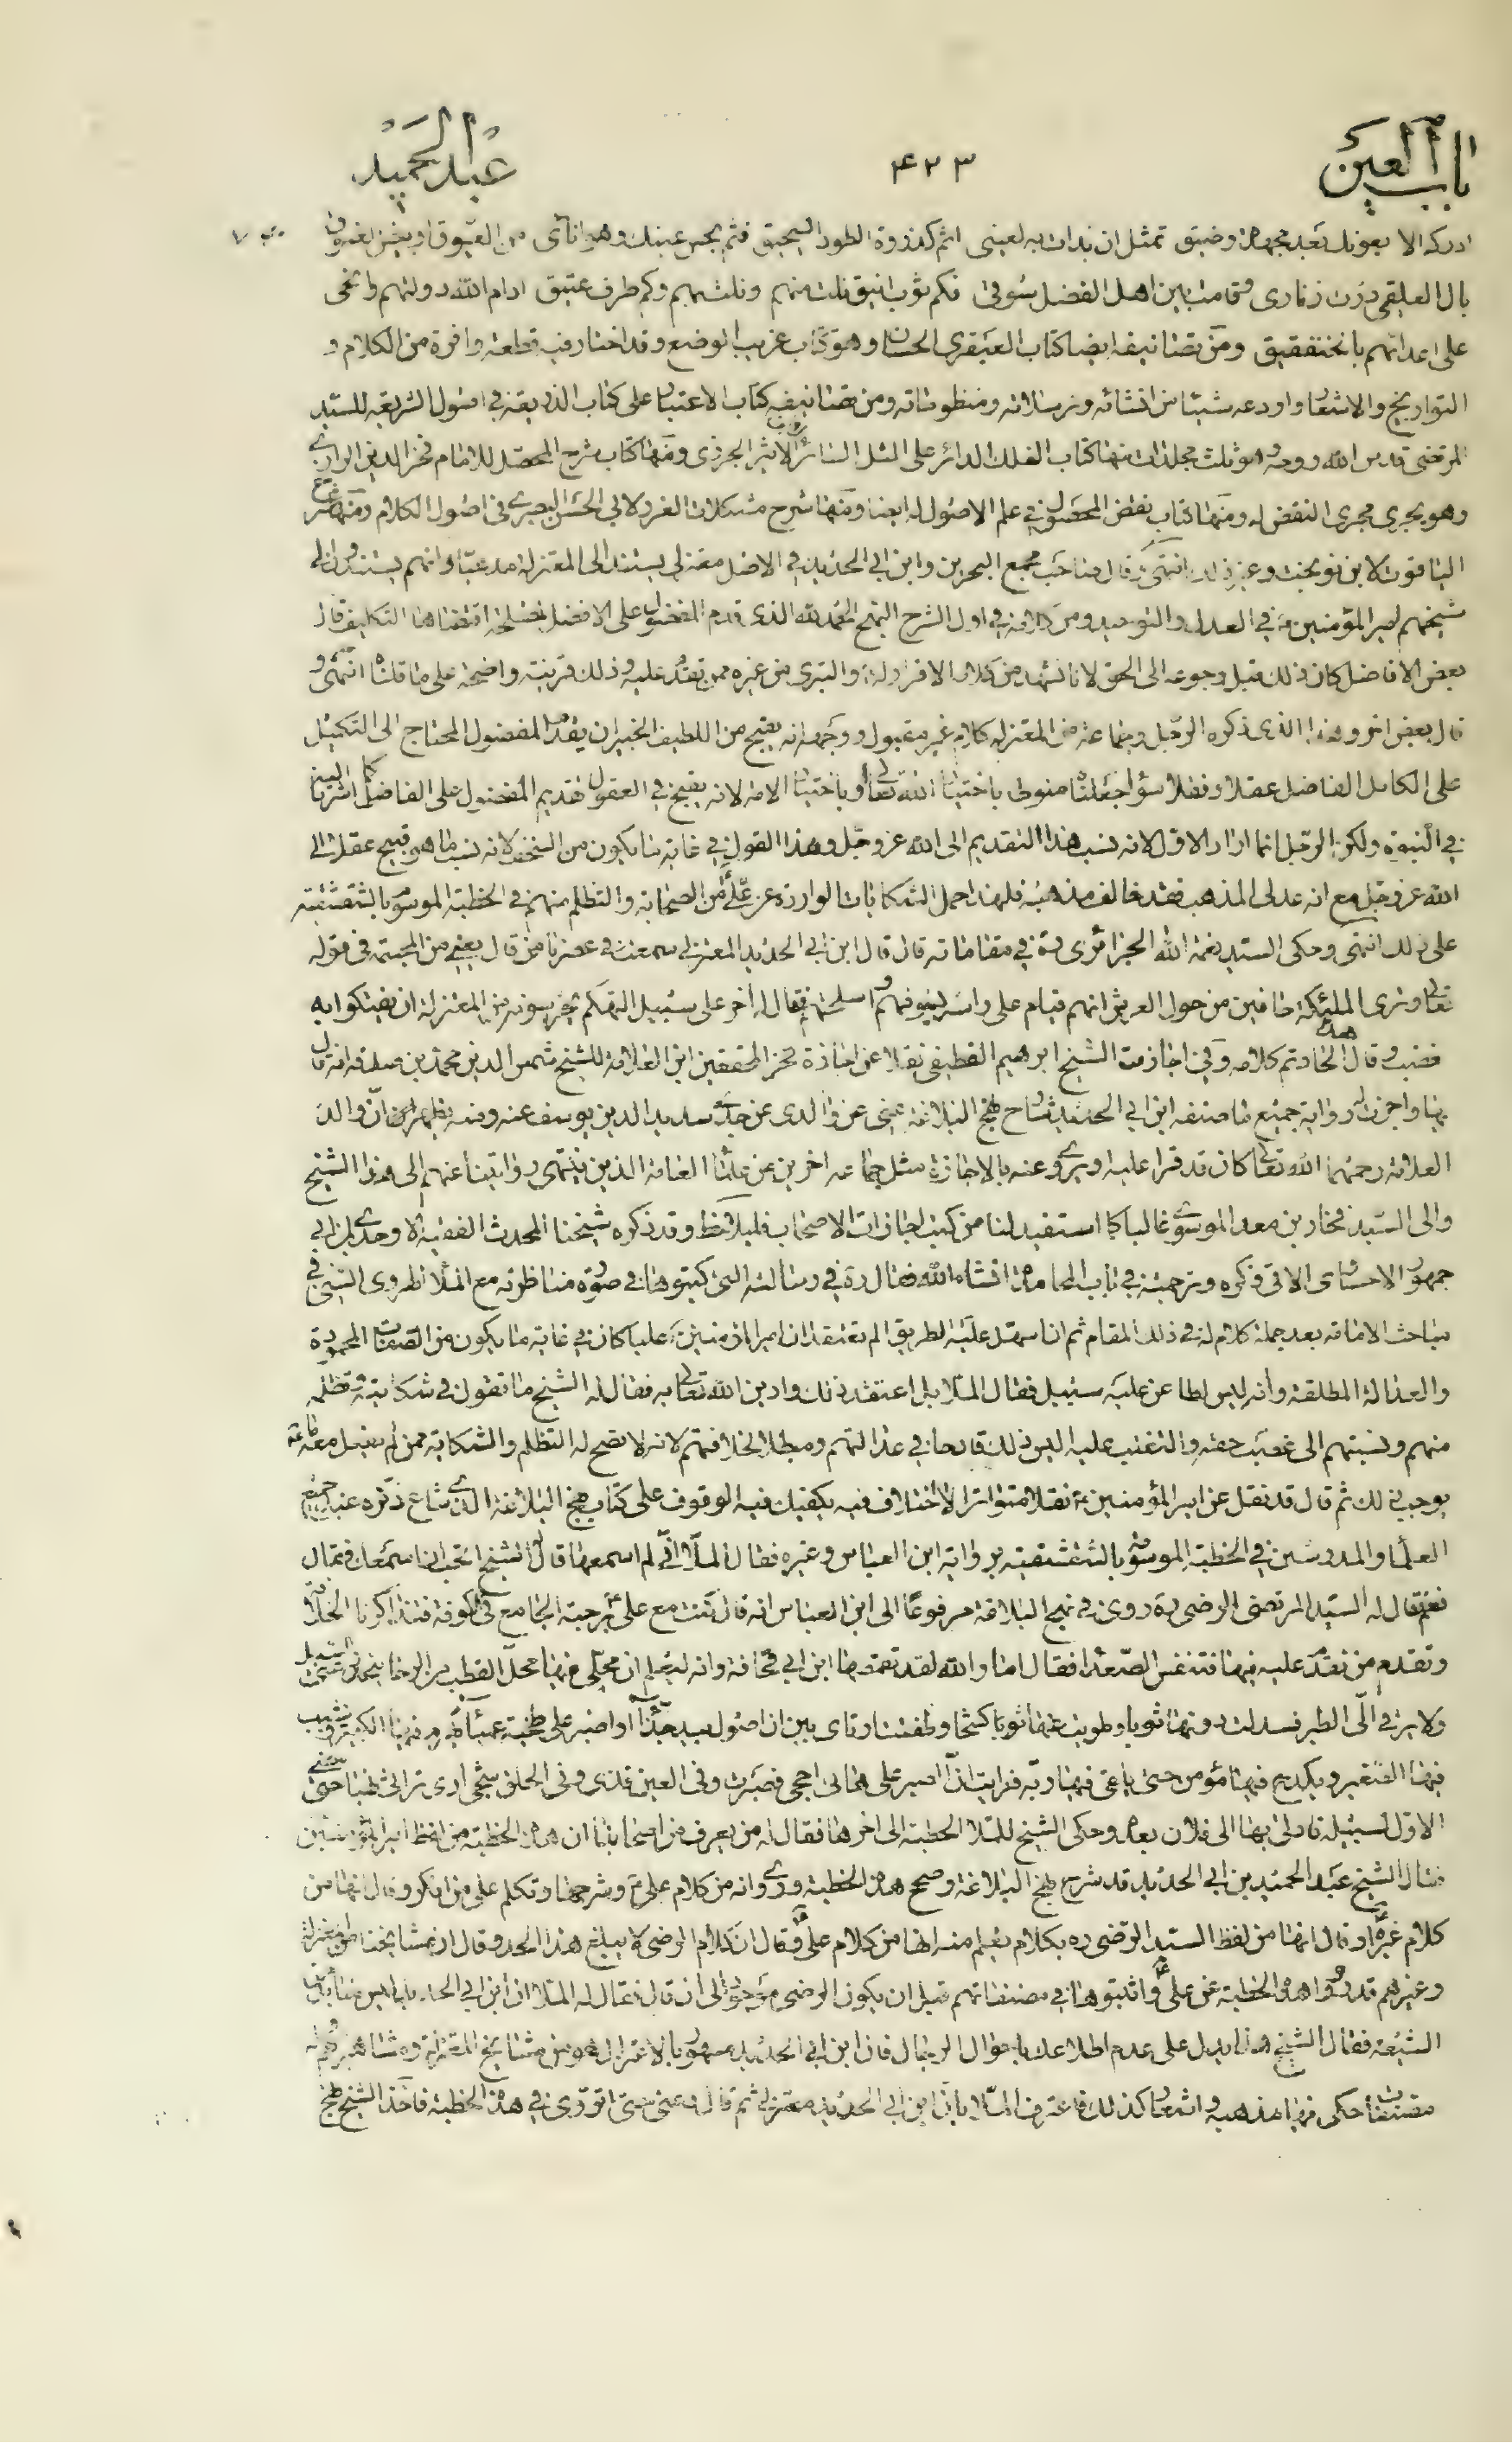 باب العين
۴۲۳
عبد الحميد
ادركه الا بعونك بعد جهد وضيق تمثل ان بدات به لعينى اشم كذروة الطود السحيق فثم بحسن عينك وهو انأى من العيوق او بيض
بال العلقمى ورت زنادى وقامت بين اهل الفضل سوقى فكم ثوب انيق نلت منهم ونلت بهم وكم طرف عتيق ادام الله دولتهم وانحى
على اعدائهم بالخنفقيق ومن تصانيفه ايضا كتاب العبقرى الحسان وهو كتاب غريب الوضع وقد اختار فيه قطعة وافرة من الكلام و
التواريخ والاشعار واودعه شيئا من انشائه وترسلاته ومنظوماته ومن تصانيفه كتاب الاعتبار على كتاب الذريعة فى اصول الشريعة للسيد
المرتضى قدس الله روحه وهو ثلث مجلدات منها كتاب الفلك الدائر على المثل السائر لابن الاثير الجزرى ومنها كتاب شرح المحصل للامام فخر الدين الرازى
وهو يجرى مجرى النقض له ومنها كتاب نقض المحصول فى علم الاصول له ايضا ومنها شرح مشكلات الغرر لابى الحسين البصرى فى اصول الكلام ومنها شرح
الياقوت لابن نوبخت وغير ذلك انتهى وقال صاحب مجمع البحرين وابن ابى الحديد فى الاصل معتزلى يستند الى المعتزلة مدعيا انهم يستندون الى
شيخهم امير المؤمنين ع فى العدل والتوحيد ومن كلامه فى اول الشرح للنهج الحمد لله الذى قدم المفضول على الافضل لمصلحة اقتضاها التكليف قال
بعض الافاضل كان ذلك قبل رجوعه الى الحق لانا نشهد من كلامه الاقرار له ع والتبرى من غيره ممن تقدم عليه وذلك قرينة واضحة على ما قلناه انتهى و
قال بعض اخر وهذا الذى ذكره الرجل وجماعة من المعتزلة كلام غير مقبول ووجهه انه يقبح من اللطيف الخبير ان يقدم المفضول المحتاج الى التكميل
على الكامل الفاضل عقلا ونقلا سواء جعلناه منوطا باختيار الله تعالى او باختيار الامة لانه يقبح فى العقول تقديم المفضول على الفاضل كما اشرنا اليه
فى النبوة ولكن الرجل انما اراد الاول لانه نسب هذا التقديم الى الله عز وجل وهذا القول فى غاية ما يكون من السخف لانه نسب ما هو قبيح عقلا الى
الله عز وجل مع انه عدلى المذهب فقد خالف مذهبه فلهذا حمل الشكايات الواردة عن على ع من الصحابة والتظلم منهم فى الخطبة الموسومة بالشقشقية
على ذلك انتهى وحكى السيد نعمة الله الجزائرى ره فى مقاماته قال قال ابن ابى الحديد المعتزلى سمعت فى عصرنا من قال بعض من المجسمة فى قوله
تعالى وترى الملئكة حافين من حول العرش انهم قيام على راسه بسيوفهم واسلحتهم فقال له اخر على سبيل التهكم يحرسونه من المعتزلة ان يفتكوا به
فغضب وقال هذا الحاد تم كلامه وفى اجازات الشيخ ابرهيم القطيفى نقلا عن اجازة فخر المحققين ابن العلامة للشيخ شمس الدين محمد بن صدقة انه قال
بها واجزت له رواية جميع ما صنفه ابن ابى الحديد شارح نهج البلاغة عنى عن والدى عن جدى سديد الدين يوسف عنه ومنه يظهر ان والد
العلامة رحمهما الله تعالى كان قد قرا عليه ويروى عنه بالاجازة مثل جماعه اخرين من علماء العامة الذين ينتهى روايتنا عنهم الى هذا الشيخ
والى السيد فخار بن معد الموسوى غالبا كما استفيد لنا من كتب اجازات الاصحاب فليلاحظ وقد ذكره شيخنا المحدث الفقيه الاوحدى ابن ابى
جمهور الاحسائى الاتى ذكره وترجمته فى باب المحامدة انشاء الله فقال ره فى رسالته التى كتبوها فى صورة مناظرته مع الملا الهروى السنى فى
مباحث الامامة بعد جملة كلام له فى ذلك المقام ثم انا سهل عليه الطريق الم تعتقد ان امير المؤمنين ع عليا كان فى غاية ما يكون من الصفات المحمودة
والعدالة المطلقة وانه ليس لطاعن عليه سبيل فقال الملا بلى اعتقد ذلك وادين الله تعالى به فقال له الشيخ ما تقول فى شكايته وتظلمه
منهم ونسبتهم الى غصب حقه والتغلب عليه اليس ذلك قادحا فى عدالتهم ومبطلا لخلافتهم لانه لا يصح له التظلم والشكاية ممن لم يفعل معه ما
يوجب ذلك ثم قال قد نقل عن امير المؤمنين ع نقلا متواترا لا اختلاف فيه يكفيك فيه الوقوف على كتاب نهج البلاغة الذى شاع ذكره عند جميع
العلماء والمدرسين فى الخطبة الموسومة بالشقشقية برواية ابن العباس وغيره فقال الملا انى لم اسمعها قال الشيخ اتحب ان اسمعك فقال
نعم فقال له السيد المرتضى الرضى ره روى فى نهج البلاغة مرفوعا الى ابن العباس انه قال كنت مع على ع برحبة الجامع فى الكوفة فتذاكرنا الخلافة
وتقدم من تقدم عليه فيها فتنفس الصعداء فقال اما والله لقد تقمصها ابن ابى قحافة وانه ليعلم ان محلى منها محل القطب من الرحا ينحدر عنى السيل
ولا يرقى الى الطير فسدلت دونها ثوبا وطويت عنها كشحا وطفقت ارتاى بين ان اصول بيد جذاء او اصبر على طخية عمياء يهرم فيها الكبير ويشيب
فيها الصغير ويكدح فيها مؤمن حتى يلقى فيها ربه فرايت ان الصبر على هاتى احجى فصبرت وفى العين قذى وفى الحلق شجى ارى تراثى نهبا حتى مضى
الاول لسبيله فادلى بها الى فلان بعده وحكى الشيخ للملا الخطبة الى اخرها فقال له من يعرف من اصحابنا ان هذه الخطبة من لفظ امير المؤمنين
فقال الشيخ عبد الحميد بن ابى الحديد قد شرح نهج البلاغة وصحح هذه الخطبة وروى انه من كلام على ع وشرحها وتكلم على من انكر وقال انها من
كلام غيره او قال انها من لفظ السيد الرضى ره بكلام يعلم منه انها من كلام على ع وقال ان كلام الرضى لا يبلغ هذا الحد وقال ان مشايخنا من المعتزلة
وغيرهم قد رووا هذه الخطبة عن على ع واثبتوها فى مصنفاتهم قبل ان يكون الرضى موجودا الى ان قال فقال له الملا ان ابن ابى الحديد ليس من
الشيعة فقال الشيخ هذا يدل على عدم اطلاعك باحوال الرجال فان ابن ابى الحديد مشهور بالاعتزال هو من مشايخ المعتزلة ومشاهيرهم وله
مصنفات حكى فيها مذهبه واشعار كذلك فاعترف الملا بان ابن ابى الحديد معتزلى ثم قال دعنى حتى اتروى فى هذه الخطبة فاخذ الشيخ نهج